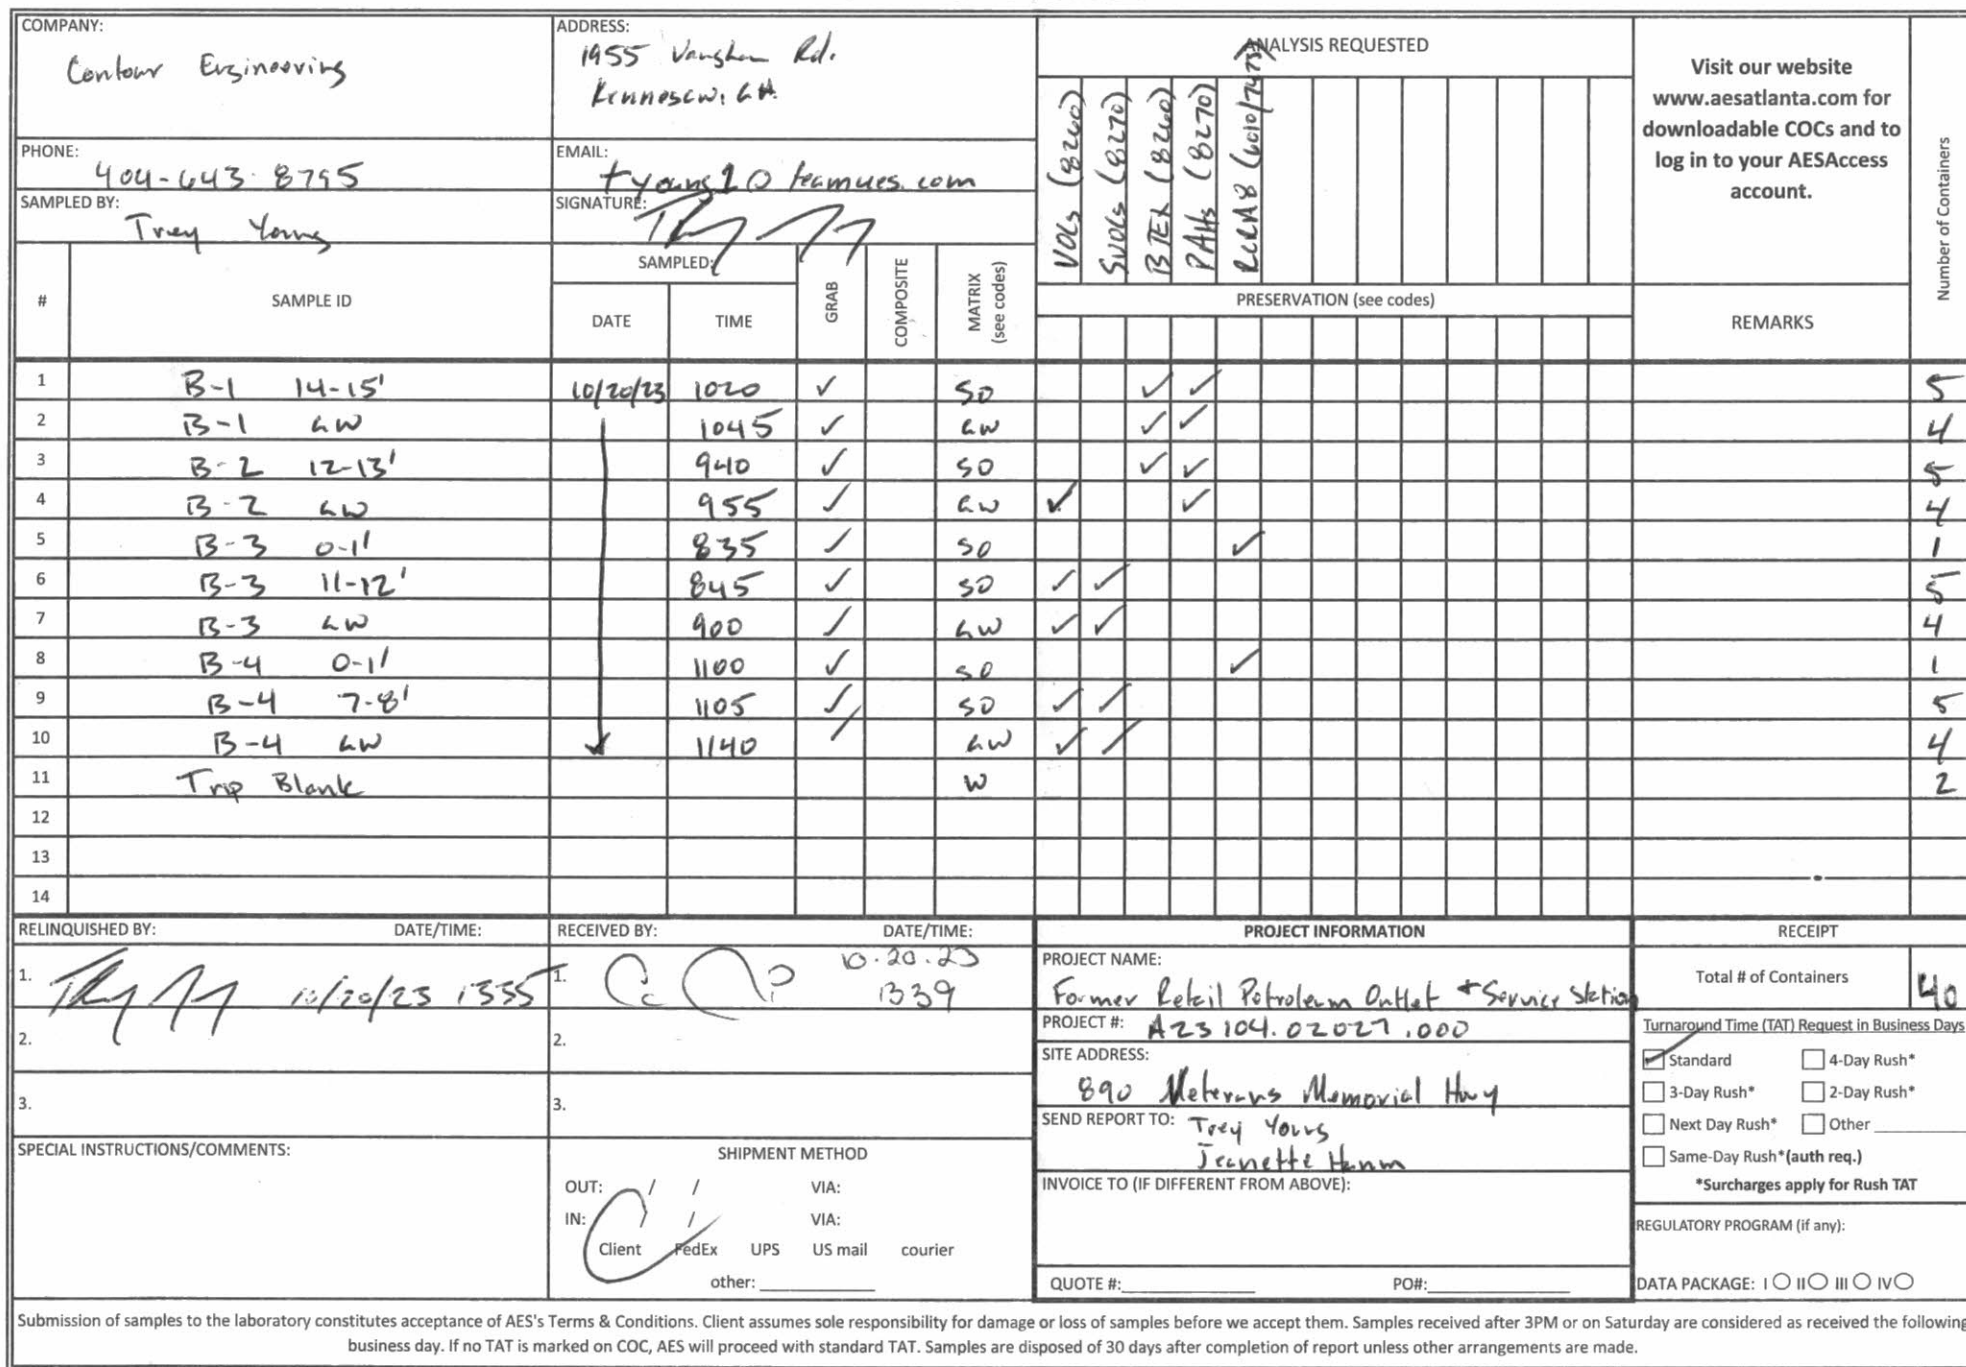 COMPANY:
Contour Engineering
ADDRESS:
1955 Vaughn Rd.
Kennesaw, GA.
PHONE:
404-643-8795
EMAIL:
tyoung1@teamues.com
SAMPLED BY:
Trey Young
SIGNATURE:
ANALYSIS REQUESTED
VOCs (8260)
SVOCs (8270)
BTEX (8260)
PAHs (8270)
RCRA8 (6010/7473)
Visit our website
www.aesatlanta.com for
downloadable COCs and to
log in to your AESAccess
account.
Number of Containers
# SAMPLE ID SAMPLED: DATE TIME GRAB COMPOSITE MATRIX (see codes) PRESERVATION (see codes) REMARKS
1 B-1 14-15' 10/20/23 1020 ✓ SO ✓ ✓ 5
2 B-1 GW 1045 ✓ GW ✓ ✓ 4
3 B-2 12-13' 940 ✓ SO ✓ ✓ 5
4 B-2 GW 955 ✓ GW ✓ ✓ 4
5 B-3 0-1' 835 ✓ SO ✓ 1
6 B-3 11-12' 845 ✓ SO ✓ ✓ 5
7 B-3 GW 900 ✓ GW ✓ ✓ 4
8 B-4 0-1' 1100 ✓ SO ✓ 1
9 B-4 7-8' 1105 ✓ SO ✓ ✓ 5
10 B-4 GW 1140 ✓ GW ✓ ✓ 4
11 Trip Blank W 2
12
13
14
RELINQUISHED BY: DATE/TIME:
1. 10/20/23 1335
2.
3.
RECEIVED BY: DATE/TIME:
1. 10.20.23
1339
2.
3.
SPECIAL INSTRUCTIONS/COMMENTS:
SHIPMENT METHOD
OUT: / / VIA:
IN: / / VIA:
Client FedEx UPS US mail courier
other:
PROJECT INFORMATION
PROJECT NAME:
Former Retail Petroleum Outlet + Service Station
PROJECT #: A23104.02027.000
SITE ADDRESS:
890 Veterans Memorial Hwy
SEND REPORT TO: Trey Young
Jeanette
INVOICE TO (IF DIFFERENT FROM ABOVE):
QUOTE #: PO#:
RECEIPT
Total # of Containers 40
Turnaround Time (TAT) Request in Business Days
✓ Standard 4-Day Rush*
3-Day Rush* 2-Day Rush*
Next Day Rush* Other
Same-Day Rush*(auth req.)
*Surcharges apply for Rush TAT
REGULATORY PROGRAM (if any):
DATA PACKAGE: I II III IV
Submission of samples to the laboratory constitutes acceptance of AES's Terms & Conditions. Client assumes sole responsibility for damage or loss of samples before we accept them. Samples received after 3PM or on Saturday are considered as received the following
business day. If no TAT is marked on COC, AES will proceed with standard TAT. Samples are disposed of 30 days after completion of report unless other arrangements are made.